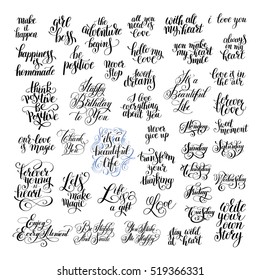 make
it
happen
girl
boss
the
adventure
begins
all you
need is
love
with all
my heart
i love you
happiness
is
homemade
be
positive
hello my
love
you make
my heart
Smile
always
in my
heart
never
stop
sweet
dreams
love is
in the
air
think
positive
be
positive
Happy
Birthday
to You
i love
everything
about you
it's a
Beautiful
Life
forever
love
our love
is
forever
Thank
You
it's a
beautiful
Life
never
give
up
Monday
sweet
moment
Saturday
forever
young is
heart
Let's
make
Love
Life is
a gift
transform
your
thinking
Sunday
Love
Wednesday
write
your
own
story
Enjoy
Every Moment
Be Happy
And Smile
stay wild
at heart
519366331